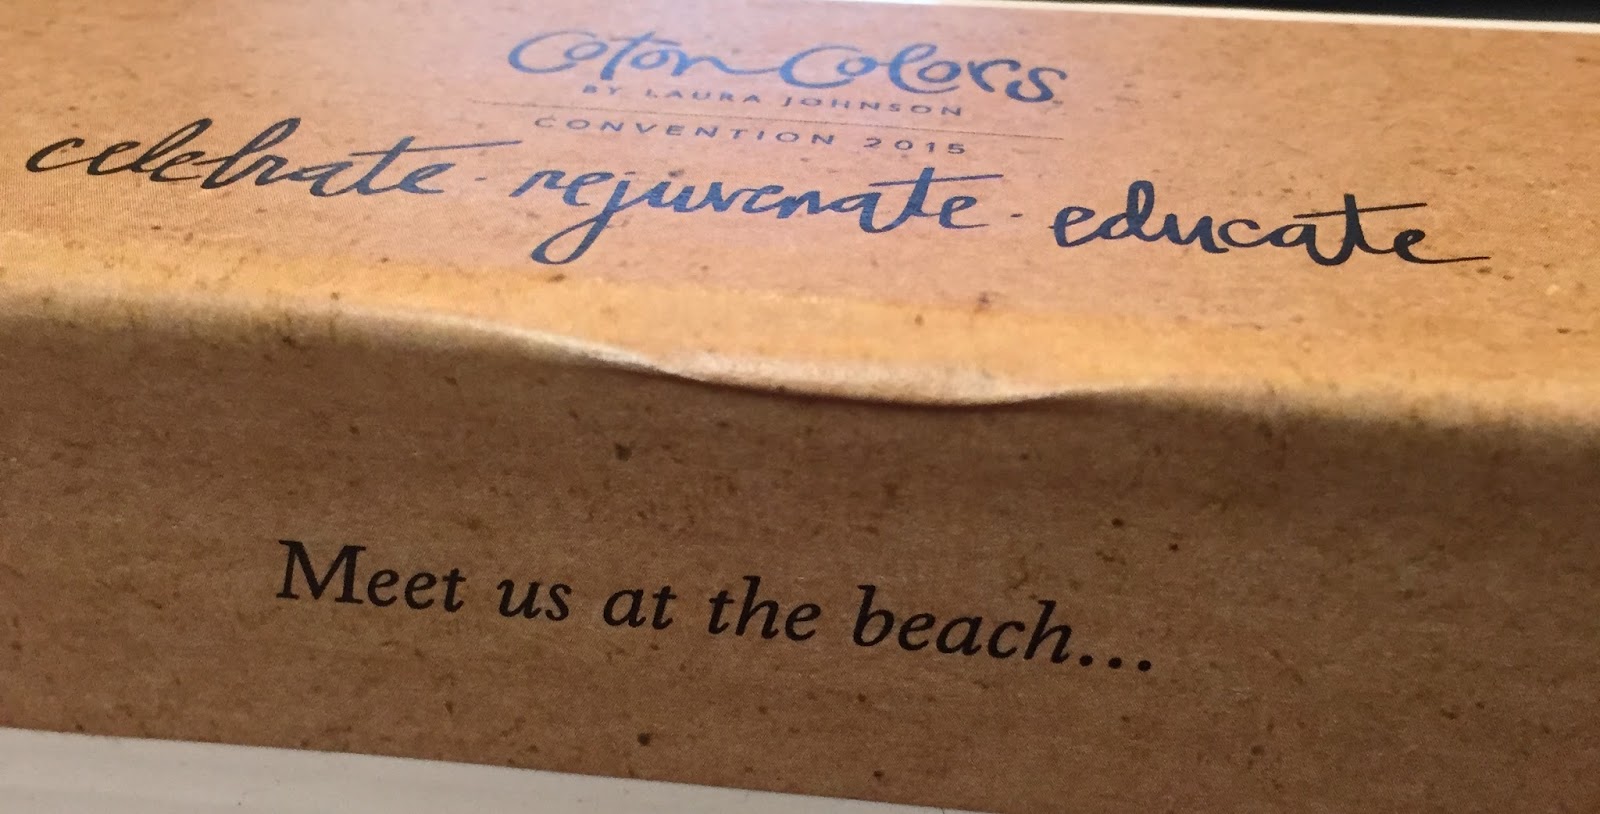 Coton Colors
BY LAURA JOHNSON
CONVENTION 2015
celebrate · rejuvenate · educate
Meet us at the beach...